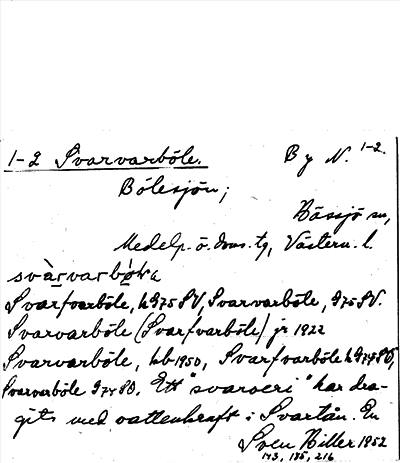 1-2 Svarvarböle. By N. 1-2.
Bölesjön;
Hässjö sn,
Medelp. ö. doms. tg, Västern. l.
svàrvarbø̀la
Svarfvarböle, hG75SV, Svarvarböle, G75SV.
Svarvarböle (Svarfvarböle) jr 1922
Svarvarböle, hb 1950, Svarfvarböle hG74SO,
Svarvarböle G74SO. Ett "svarveri" har dra-
gits med vattenkraft i Svartån. En
Sven Hiller 1952
143, 185, 216